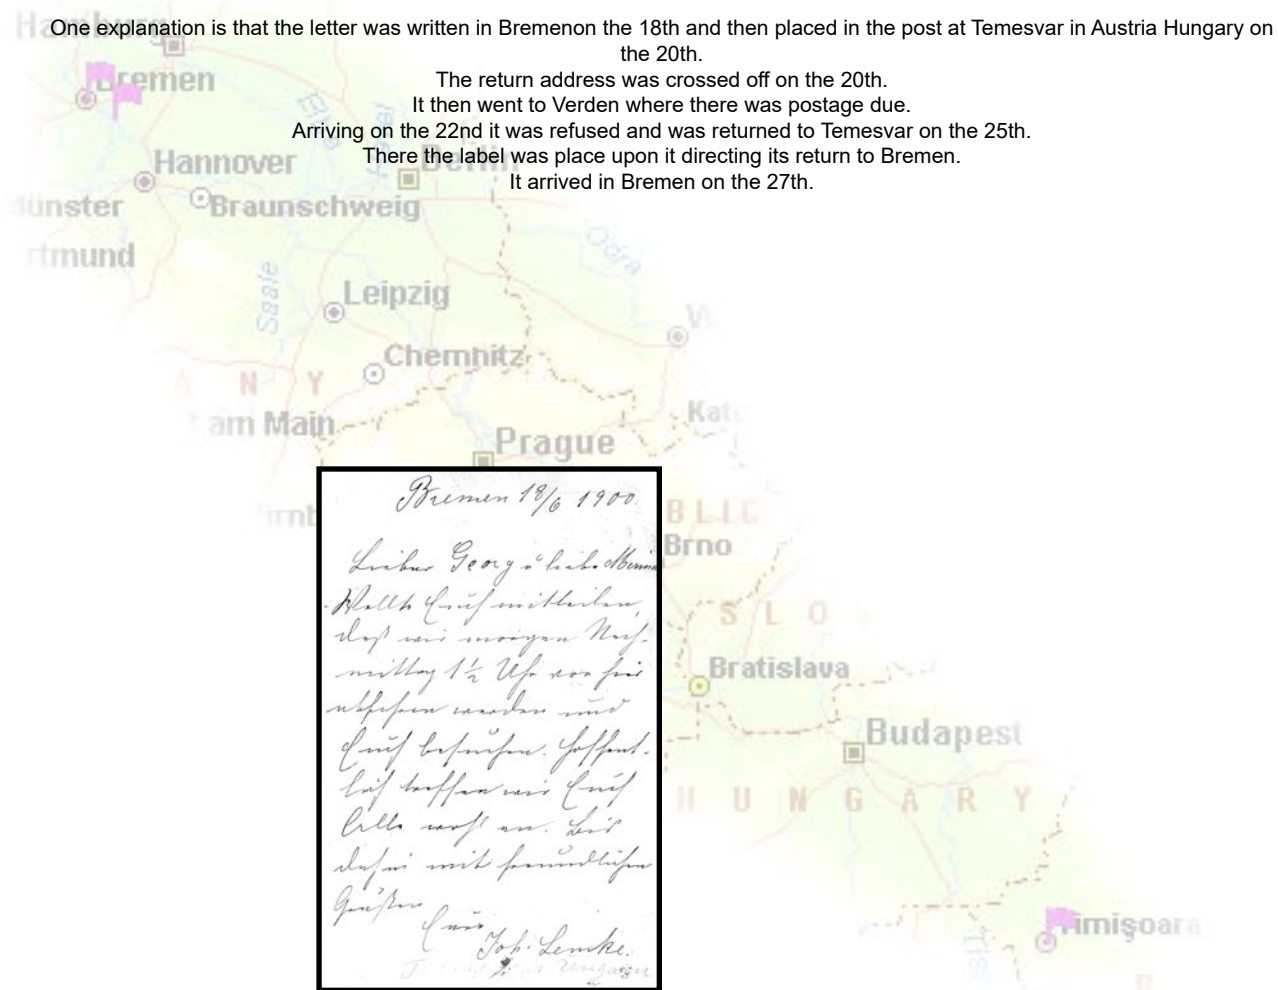 One explanation is that the letter was written in Bremenon the 18th and then placed in the post at Temesvar in Austria Hungary on
the 20th.
The return address was crossed off on the 20th.
It then went to Verden where there was postage due.
Arriving on the 22nd it was refused and was returned to Temesvar on the 25th.
There the label was place upon it directing its return to Bremen.
It arrived in Bremen on the 27th.
Hamburg
Bremen
Elbe
Havel
Hannover
Berlin
ünster
Braunschweig
Odra
rtmund
Saale
Leipzig
W
Chemnitz
A N Y
am Main
Kato
Prague
irnb
BLIC
Brno
SLO
Bratislava
Budapest
HUNGARY
Timişoara
Bremen 18/6 1900.
Lieber Georg u liebe Minna
Wollte Euch mitteilen,
daß wir morgen Nach-
mittag 1 1/2 Uhr von hier
abfahren werden und
Euch besuchen. Hoffent-
lich treffen wir Euch
Alle wohl an. Bis
dahin mit freundlichen
Grüßen
Euer
Joh. Lemke.
Ungarn